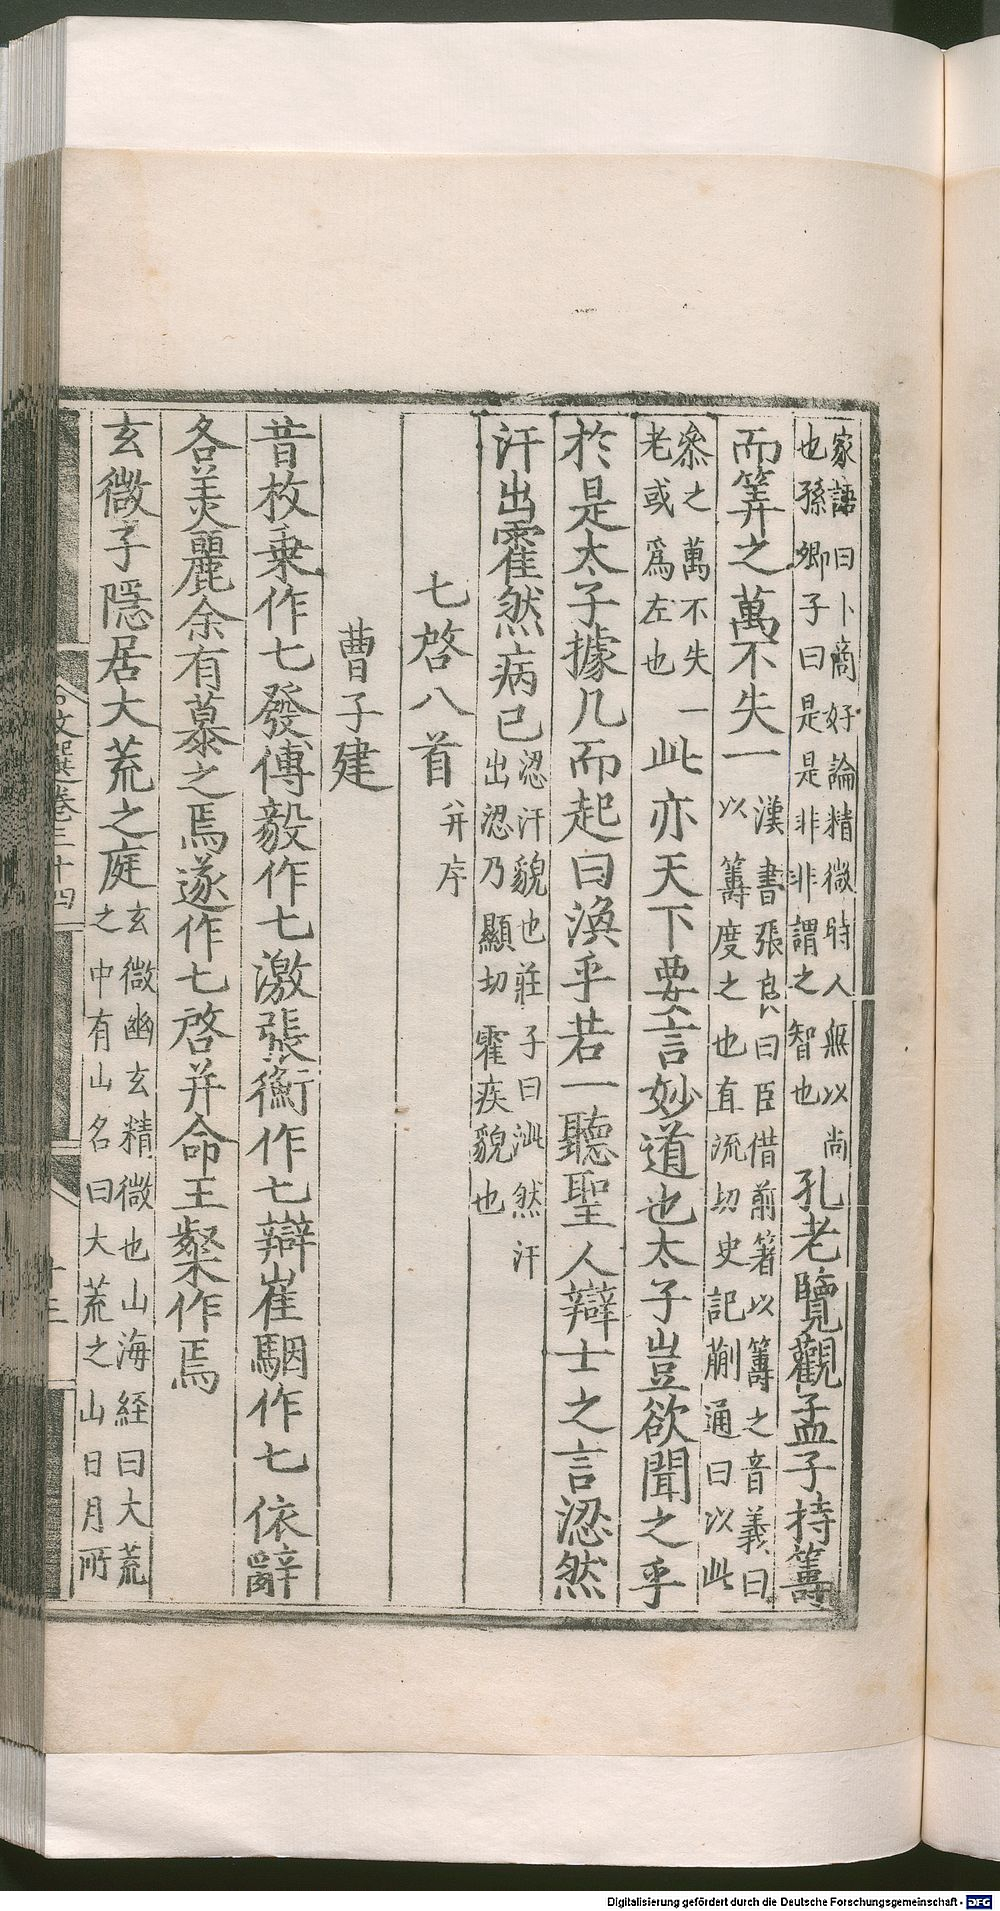 家語曰卜商好論精微時人無以尚
也孫卿子曰是是非非謂之智也
孔老覽觀孟子持籌
而筭之萬不失一
漢書張良曰臣借前箸以籌之音義曰
以籌度之也直流切史記蒯通曰以此
叅之萬不失一
老或爲左也
此亦天下要言妙道也太子豈欲聞之乎
於是太子據几而起曰渙乎若一聽聖人辯士之言涊然
汗出霍然病已
涊汗貌也莊子曰泚然汗
出涊乃顯切霍疾貌也
七啓八首
并序
曹子建
昔枚乗作七發傅毅作七激張衡作七辯崔駰作七依辭
各美麗余有慕之焉遂作七啓并命王粲作焉
玄微子隱居大荒之庭
玄微幽玄精微也山海経曰大荒
之中有山名曰大荒之山日月所
文選卷三十四
十三
Digitalisierung gefördert durch die Deutsche Forschungsgemeinschaft - DFG